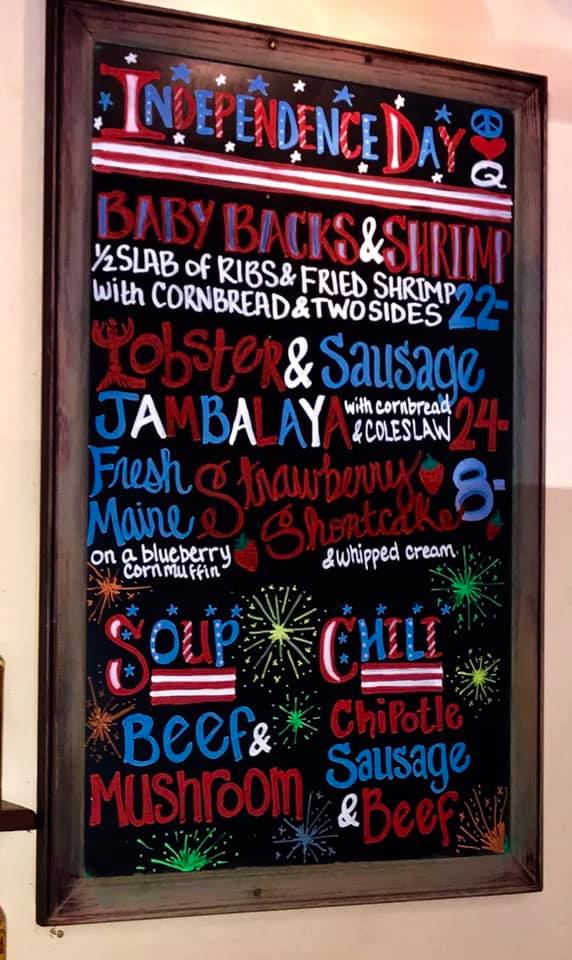 INDEPENDENCE DAY
Q
BABY BACKS & SHRIMP
1/2 SLAB of RIBS & FRIED SHRIMP
with CORNBREAD & TWO SIDES 22-
Lobster & Sausage
JAMBALAYA with cornbread & COLESLAW 24-
Fresh Maine Strawberry Shortcake 8-
on a blueberry corn muffin & whipped cream.
SOUP
Beef & Mushroom
CHILI
Chipotle
Sausage
& Beef